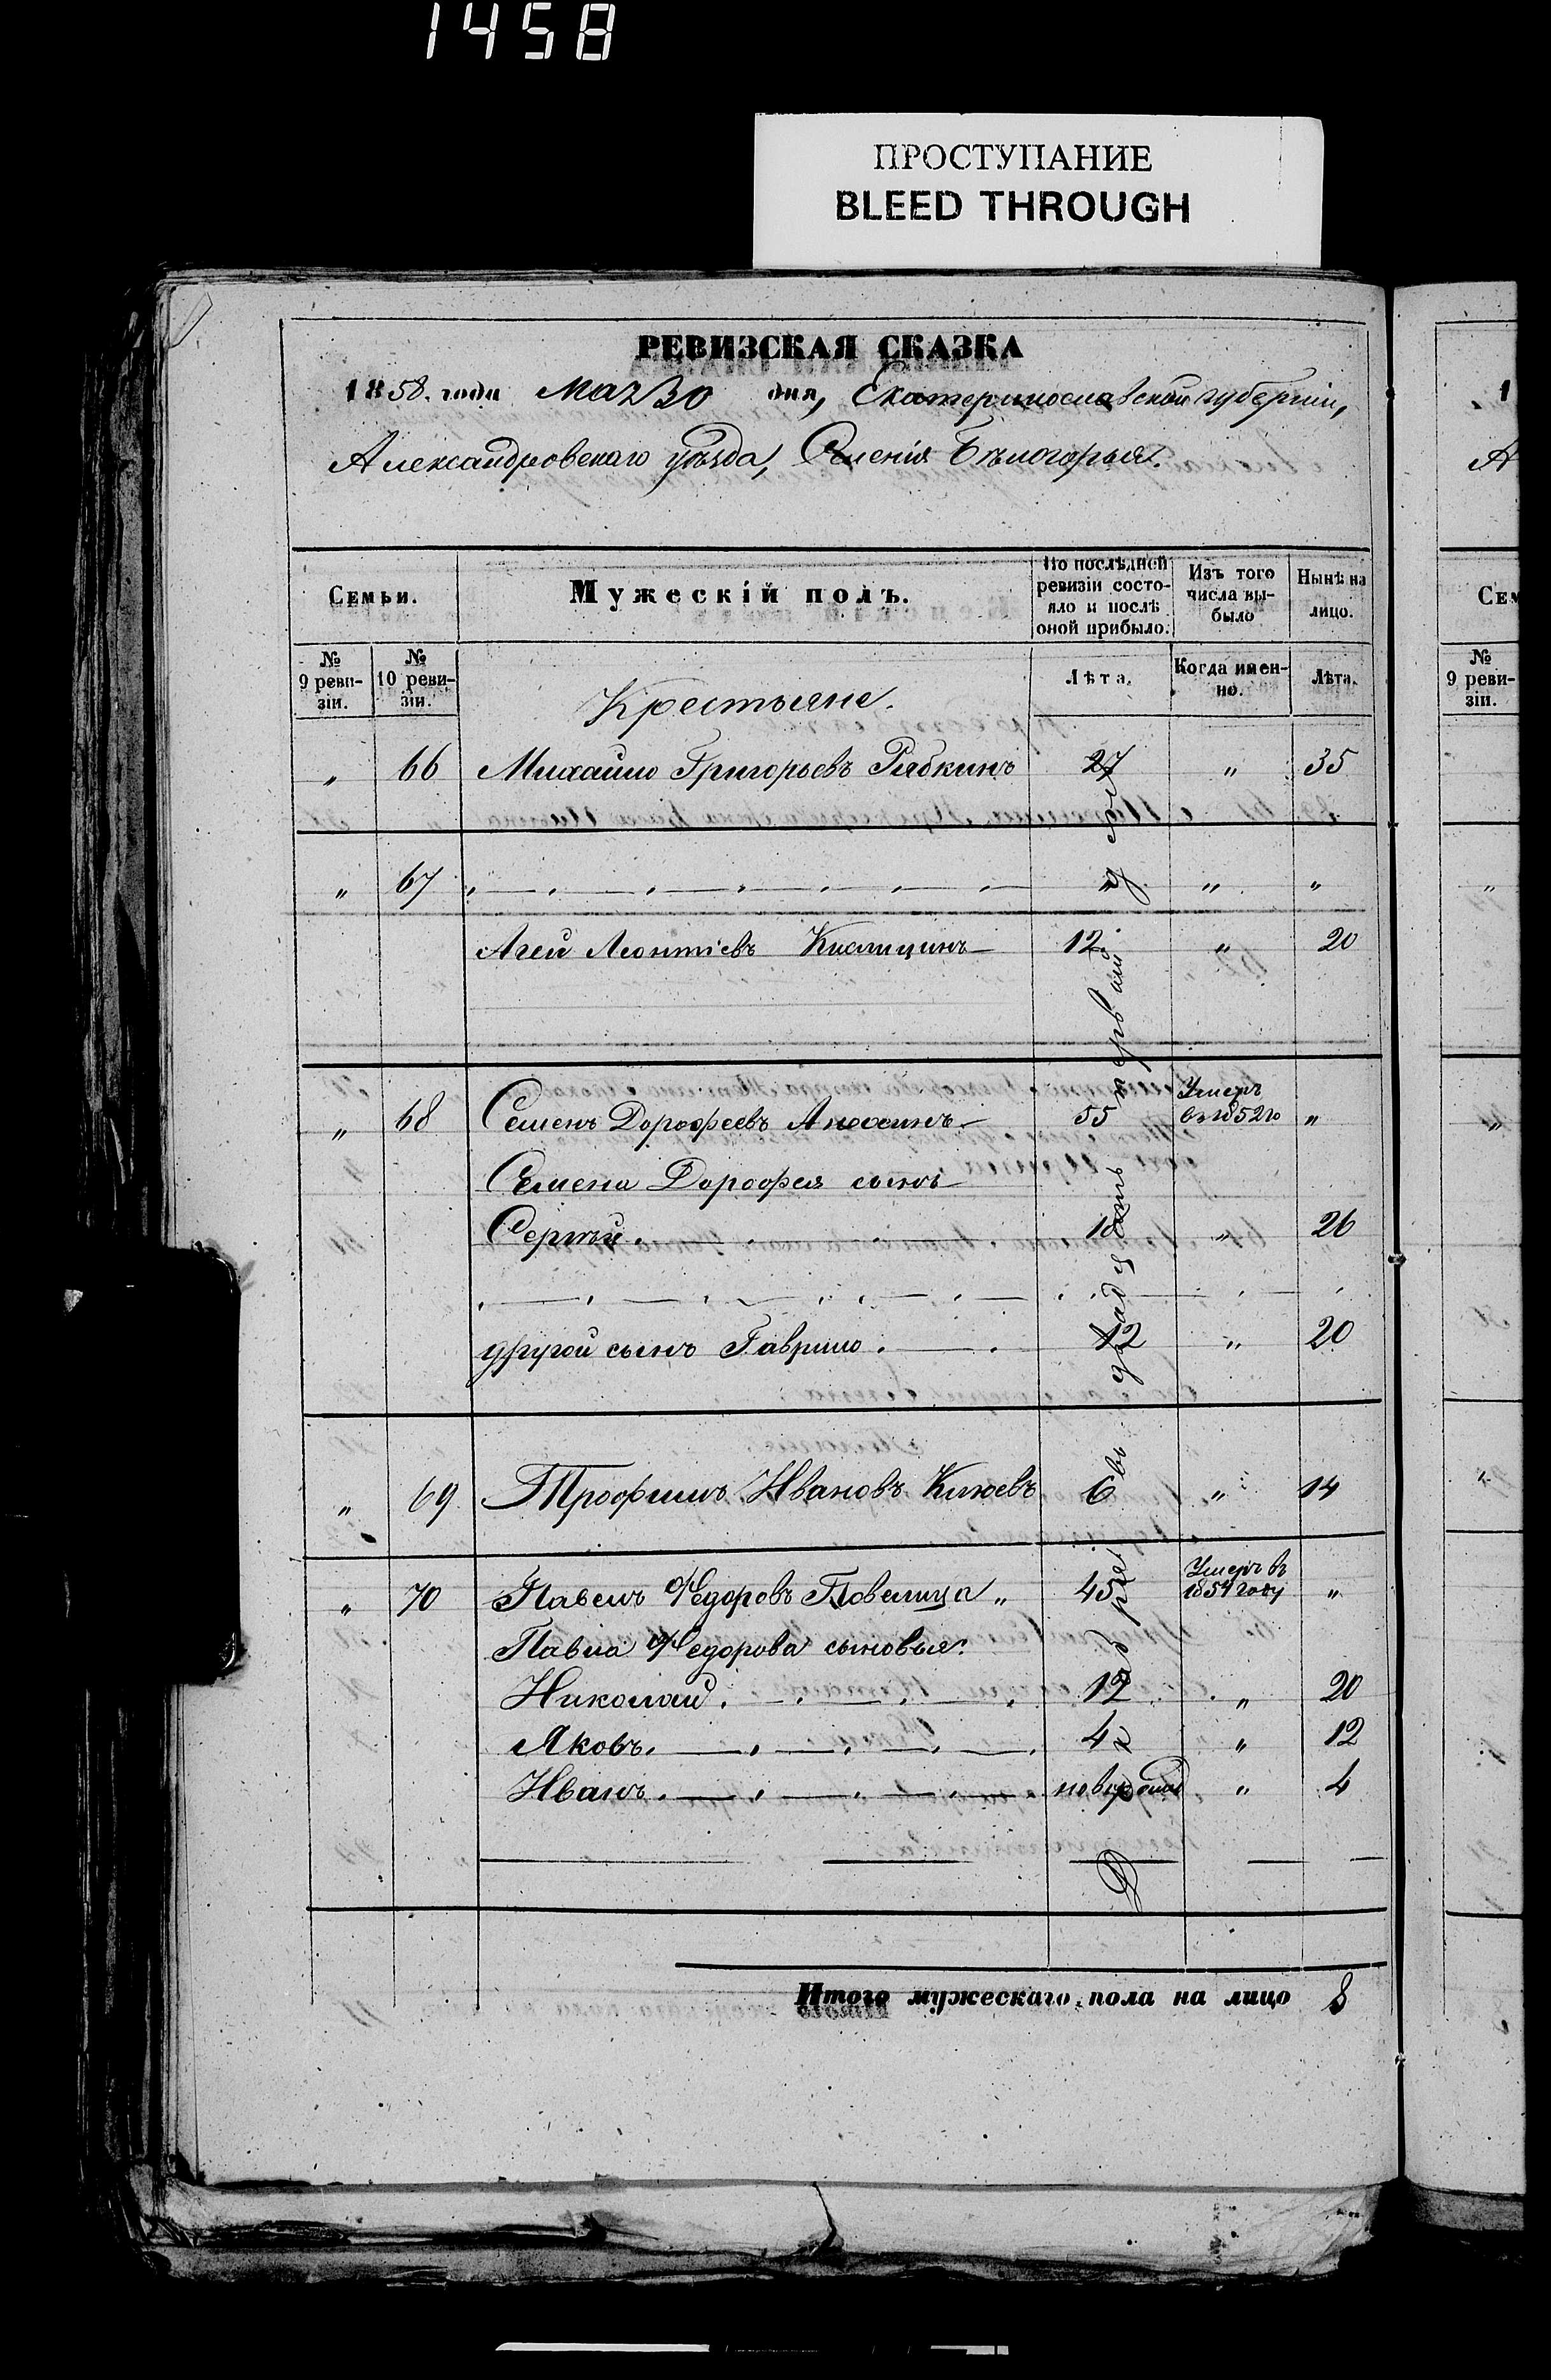 1458
ПРОСТУПАНИЕ
BLEED THROUGH
РЕВИЗСКАЯ СКАЗКА
1858. года Мая 30 дня, Екатеринославской губерніи,
Александровскаго уѣзда, Селенія Бѣлогорья.
Семьи.
Мужескій полъ.
По послѣдней ревизіи состояло и послѣ оной прибыло.
Изъ того числа выбыло
Нынѣ на лицо.
№ 9 ревизіи.
№ 10 ревизіи.
Крестьяне.
Лѣта.
Когда именно.
Лѣта.
„ 66 Михайло Григорьевъ Рябкинъ 27 „ 35
„ 67 „ „ „
Агей Леонтіевъ Кислицинъ 12 „ 20
„ 68 Семенъ Дорофеевъ Анохинъ 55 Умеръ въ 1852 го „
Семена Дорофея сынъ
Сергѣй 18 „ 26
другой сынъ Гаврило 12 „ 20
„ 69 Трофимъ Ивановъ Клюевъ 6 „ 14
„ 70 Павелъ Федоровъ Повелица „ 45 Умеръ въ 1854 году „
Павла Федорова сыновья:
Николай 12 „ 20
Яковъ 4 „ 12
Иванъ новорожд „ 4
двадцать первый
Итого мужескаго пола на лицо 8
1
А
Сем
№ 9 ревизіи.